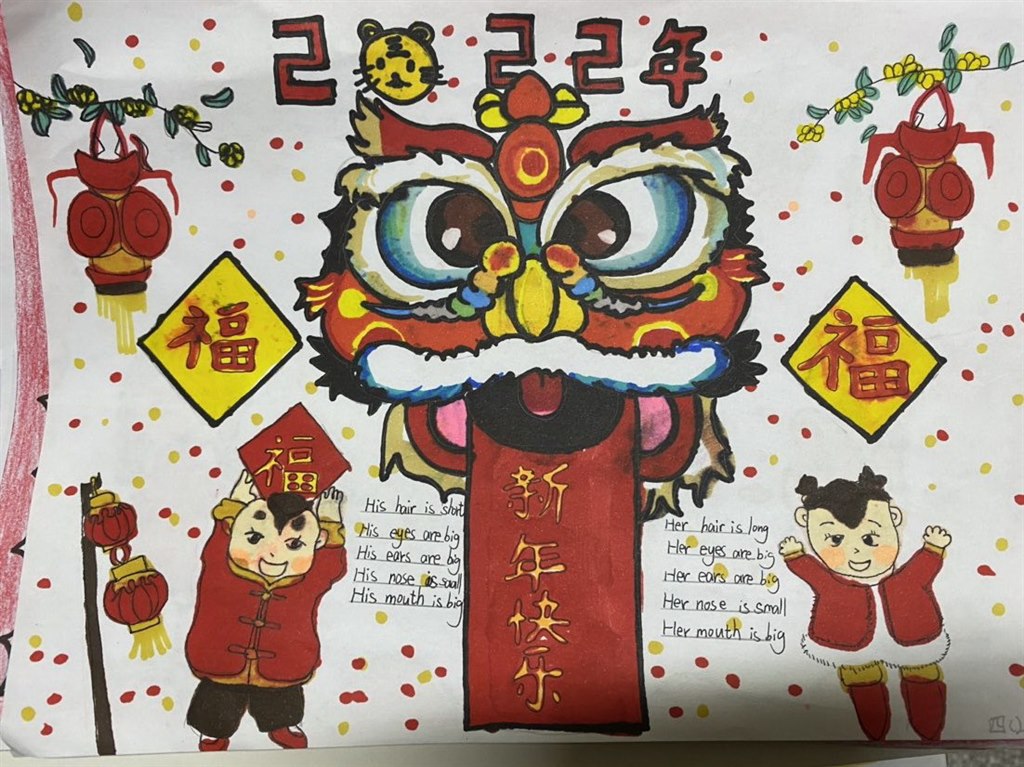 2022年
福
福
福
新年快乐
His hair is short
His eyes are big
His ears are big
His nose is small
His mouth is big
Her hair is long
Her eyes are big
Her ears are big
Her nose is small
Her mouth is big